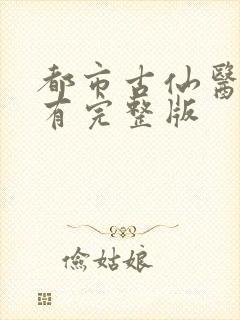 都市古仙醫
有完整版
儉姑娘